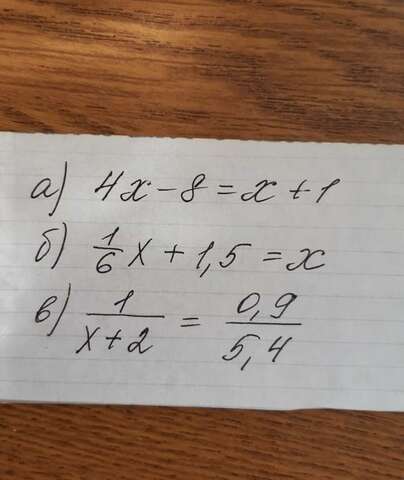 а) 4x - 8 = x + 1
б) 1/6 x + 1,5 = x
в) 1/(x + 2) = 0,9/5,4